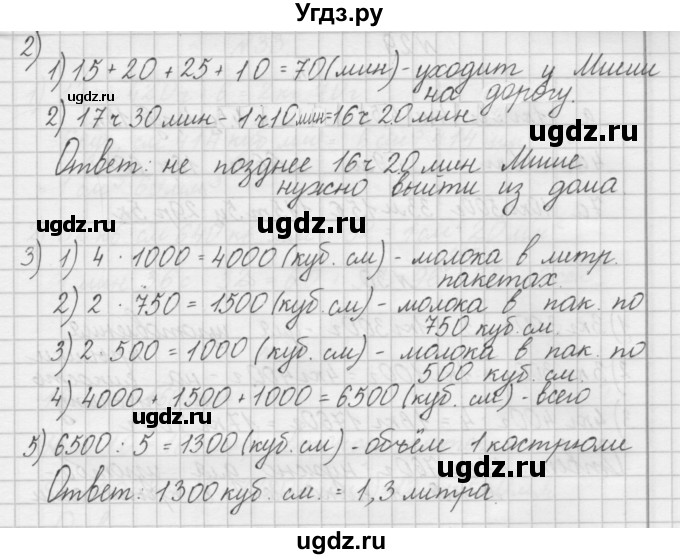 Угдз.ру
2)
1) 15 + 20 + 25 + 10 = 70 (мин) - уходит у Миши
на дорогу.
ugdz.ru
2) 17ч 30мин - 1ч10мин=16ч 20мин
ugdz.ru
Ответ: не позднее 16ч 20мин Мише
нужно выйти из дома
ugdz.ru
ugdz.ru
3) 1) 4 · 1000 = 4000 (куб. см) - молока в литр.
пакетах.
2) 2 · 750 = 1500 (куб. см) - молока в пак. по
750 куб. см.
ugdz.ru
3) 2 · 500 = 1000 (куб. см) - молока в пак. по
500 куб. см
4) 4000 + 1500 + 1000 = 6500 (куб. см) - всего
ugdz.ru
5) 6500 : 5 = 1300 (куб. см) - объём 1 кастрюли
ugdz.ru
Ответ: 1300 куб. см. = 1,3 литра.
Угдз.ру